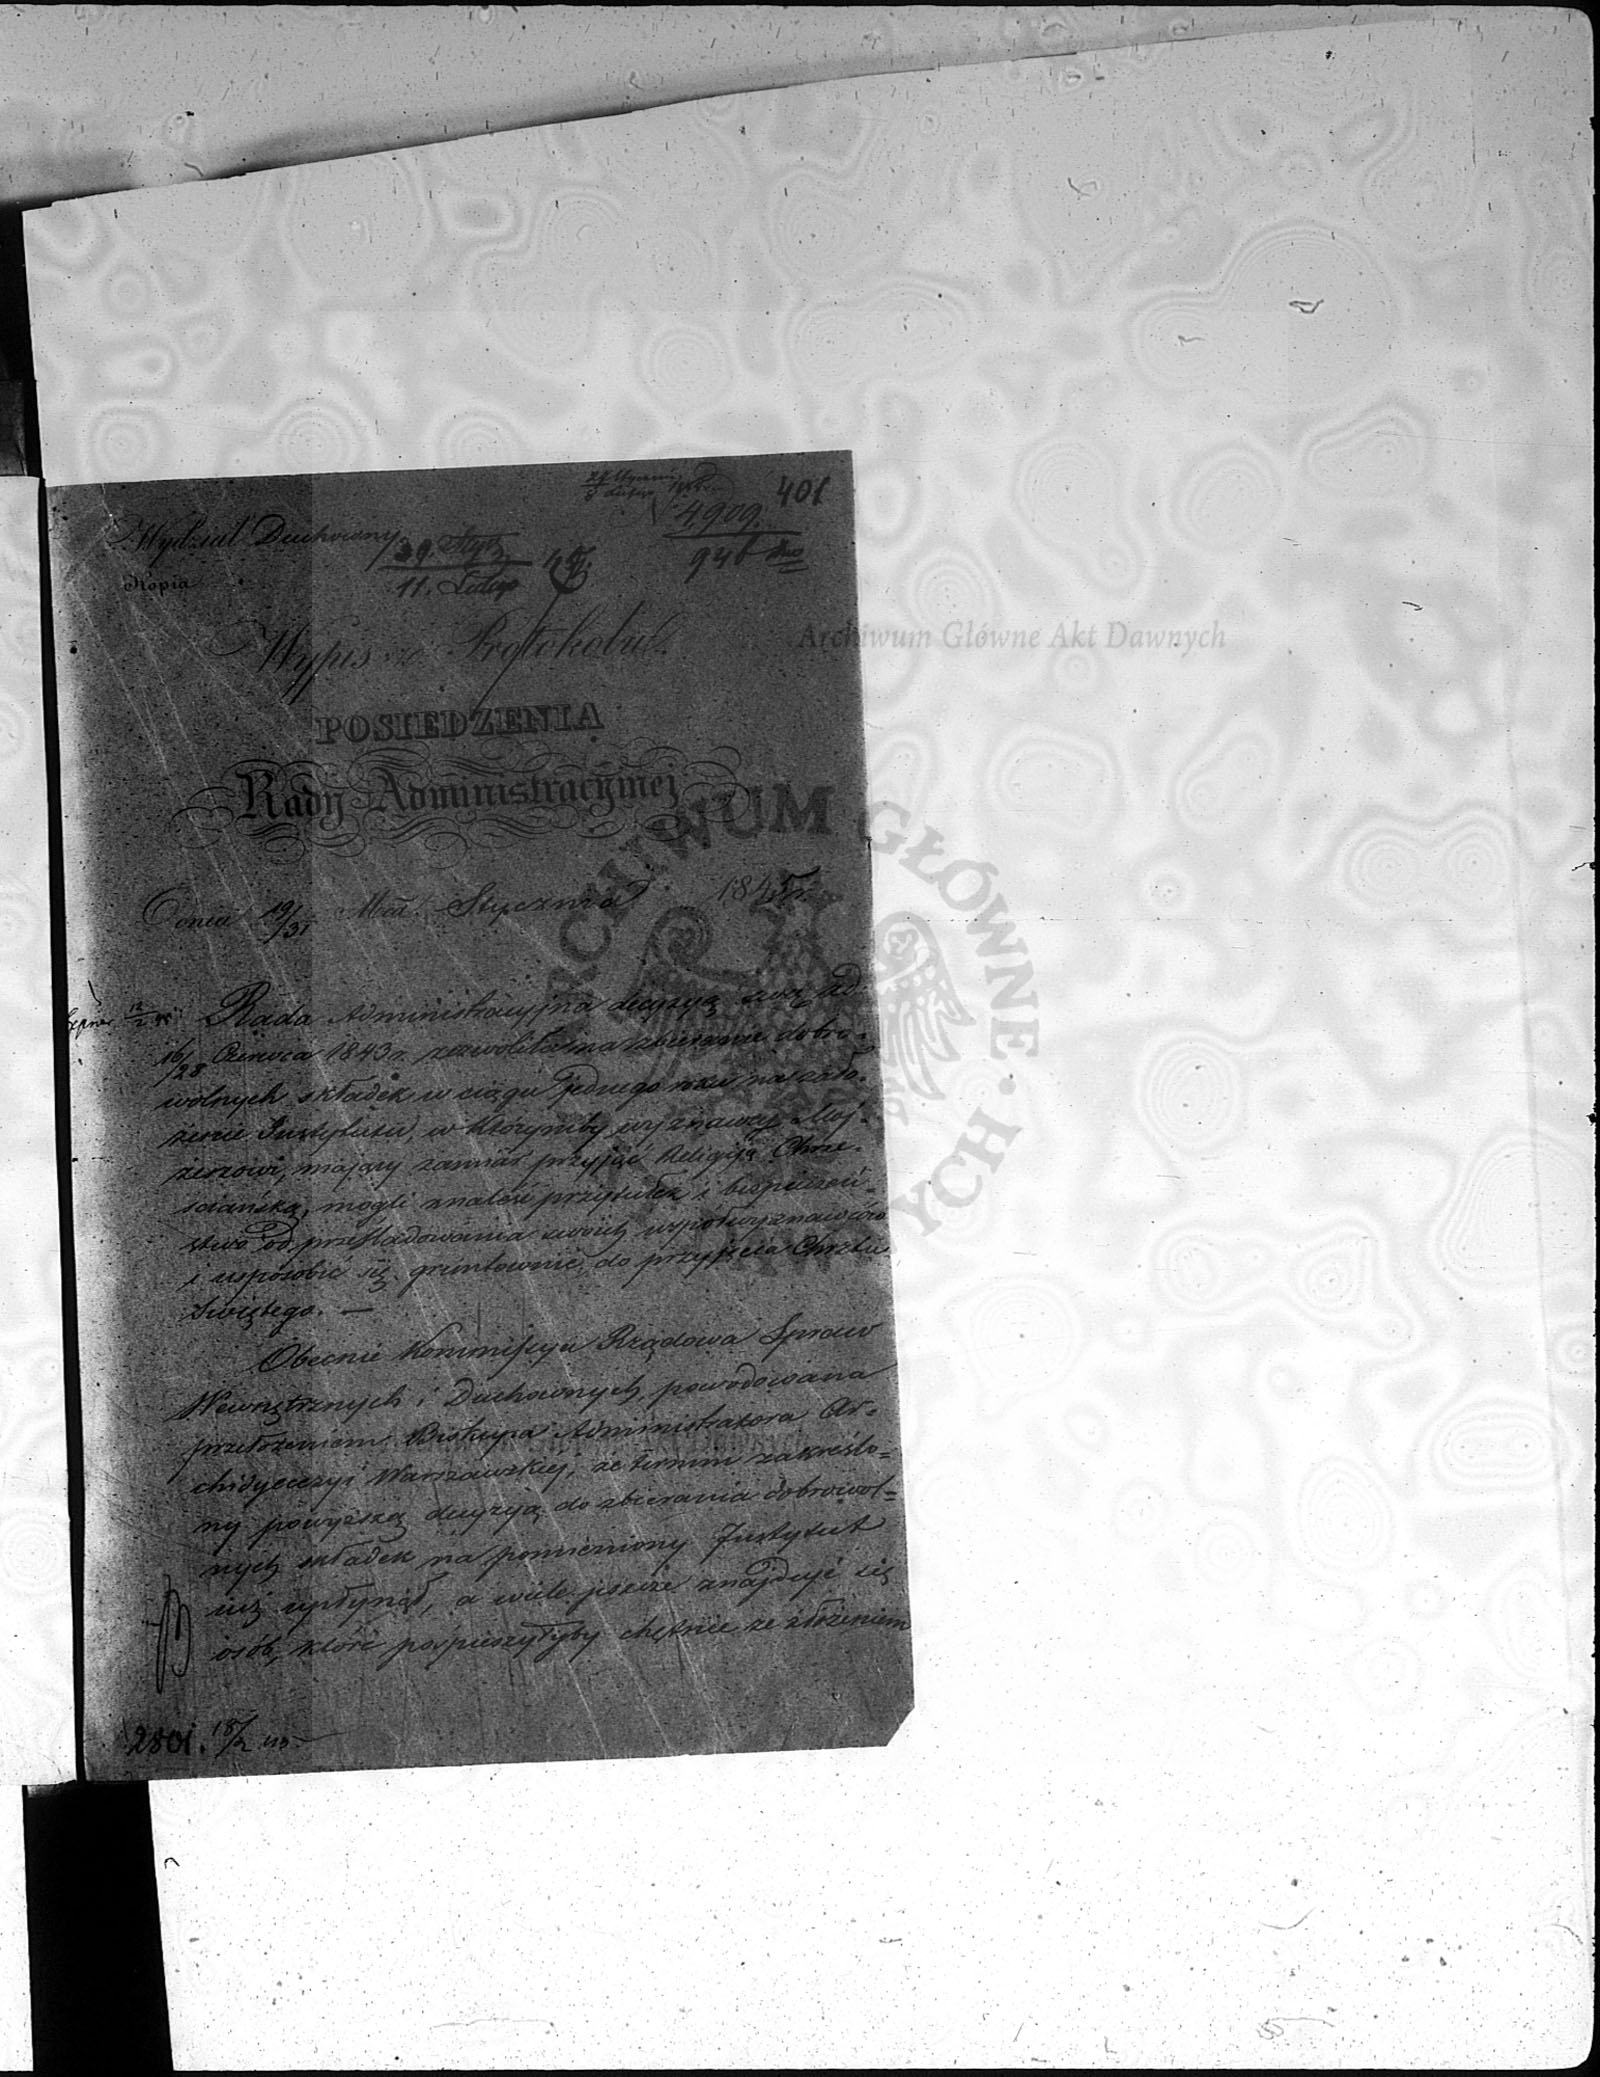 401
4909.
946
Wydział Duchowny
29. Stycz
11. Lutego 45.
Kopia
Wypis z Protokołu
POSIEDZENIA
Rady Administracyjnej
Dnia 19/31 Mca Stycznia 1845 r.
12/2 45
Rada Administracyjna decyzyą swą z d.
16/28 Czerwca 1843 r. zezwoliła na zbieranie dobro-
wolnych składek w ciągu jednego roku na zało-
żenie Instytutu, w którymby wyznawcy Moj-
żeszowi, mający zamiar przyjąć Religiją Chrze-
ściańską, mogli znaleść przytułek i bezpieczeń-
stwo od prześladowania swoich współwyznawców
i usposobić się gruntownie do przyjęcia Chrztu
Świętego. —
Obecnie Kommissya Rządowa Spraw
Wewnętrznych i Duchownych, powodowana
przełożeniem Biskupa Administratora Ar-
chidyecezyi Warszawskiej, że termin zakreślo-
ny powyższą decyzyą do zbierania dobrowol-
nych składek na pomieniony Instytut
już upłynął, a wiele jeszcze znajduje się
osób, które pospieszyłyby chętnie ze złożeniem
2801. 18/2 45
Archiwum Główne Akt Dawnych
ARCHIWUM GŁÓWNE AKT DAWNYCH